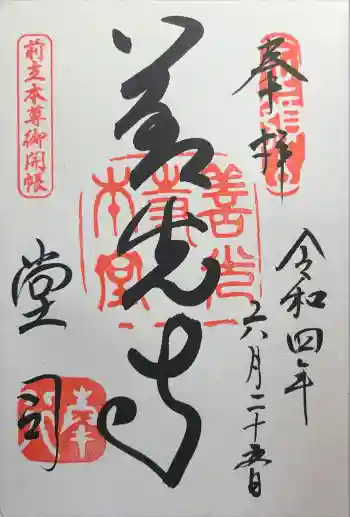 奉拝
令和四年
六月二十五日
善光寺
善光
寺
本堂
前立本尊御開帳
堂司